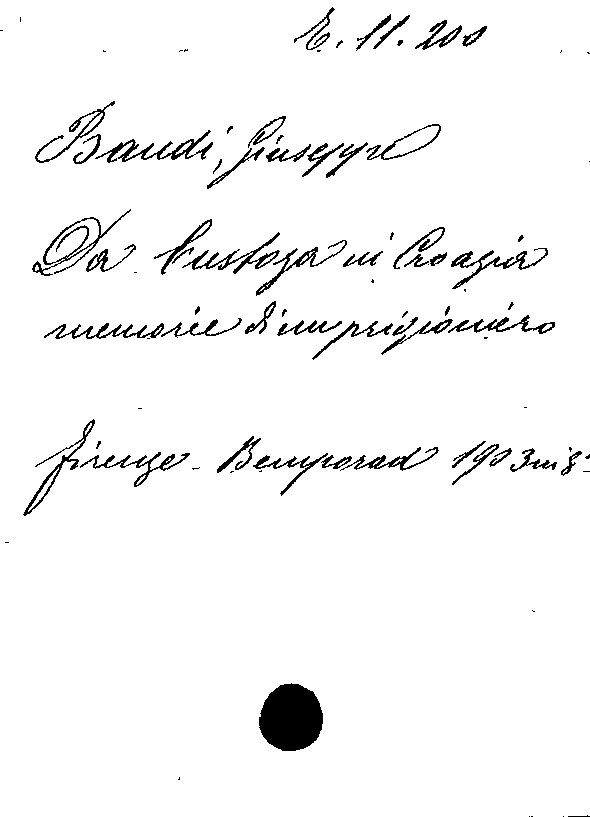 E. 11. 200
Baudi, Giuseppe
Da Custoza in Croazia
memorie d'un prigioniero
Firenze - Bemporad 1903 in 8°